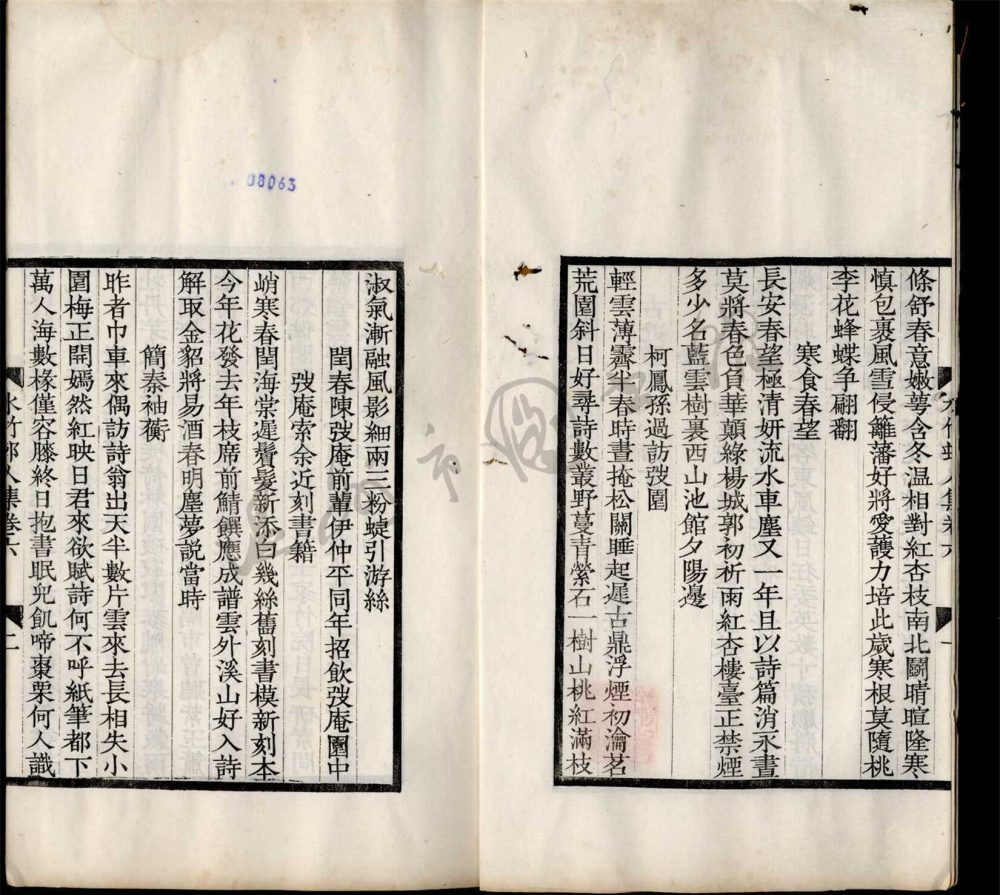 條舒春意嫩萼含冬温相對紅杏枝南北鬭晴暄隆寒
慎包裹風雪侵籬藩好將愛護力培此歲寒根莫隨桃
李花蜂蝶争翩翻
寒食春望
長安春望極清妍流水車塵又一年且以詩篇消永晝
莫將春色負華顛綠楊城郭初祈雨紅杏樓臺正禁煙
多少名藍雲樹裏西山池館夕陽邊
柯鳳孫過訪弢園
輕雲薄霽半春時晝掩松關睡起遲古鼎浮煙初瀹茗
荒園斜日好尋詩數叢野蔓青縈石一樹山桃紅滿枝
淑氣漸融風影細兩三粉蜨引游絲
閏春陳弢庵前輩伊仲平同年招飲弢庵園中
弢庵索余近刻書籍
峭寒春閏海棠遲鬢髮新添白幾絲舊刻書模新刻本
今年花發去年枝席前鯖饌應成譜雲外溪山好入詩
解取金貂將易酒春明塵夢説當時
簡秦袖蘅
昨者巾車來偶訪詩翁出天半數片雲來去長相失小
園梅正開嫣然紅映日君來欲賦詩何不呼紙筆都下
萬人海數椽僅容膝終日抱書眠兒飢啼棗栗何人識
水竹邨人集卷六
二
08063